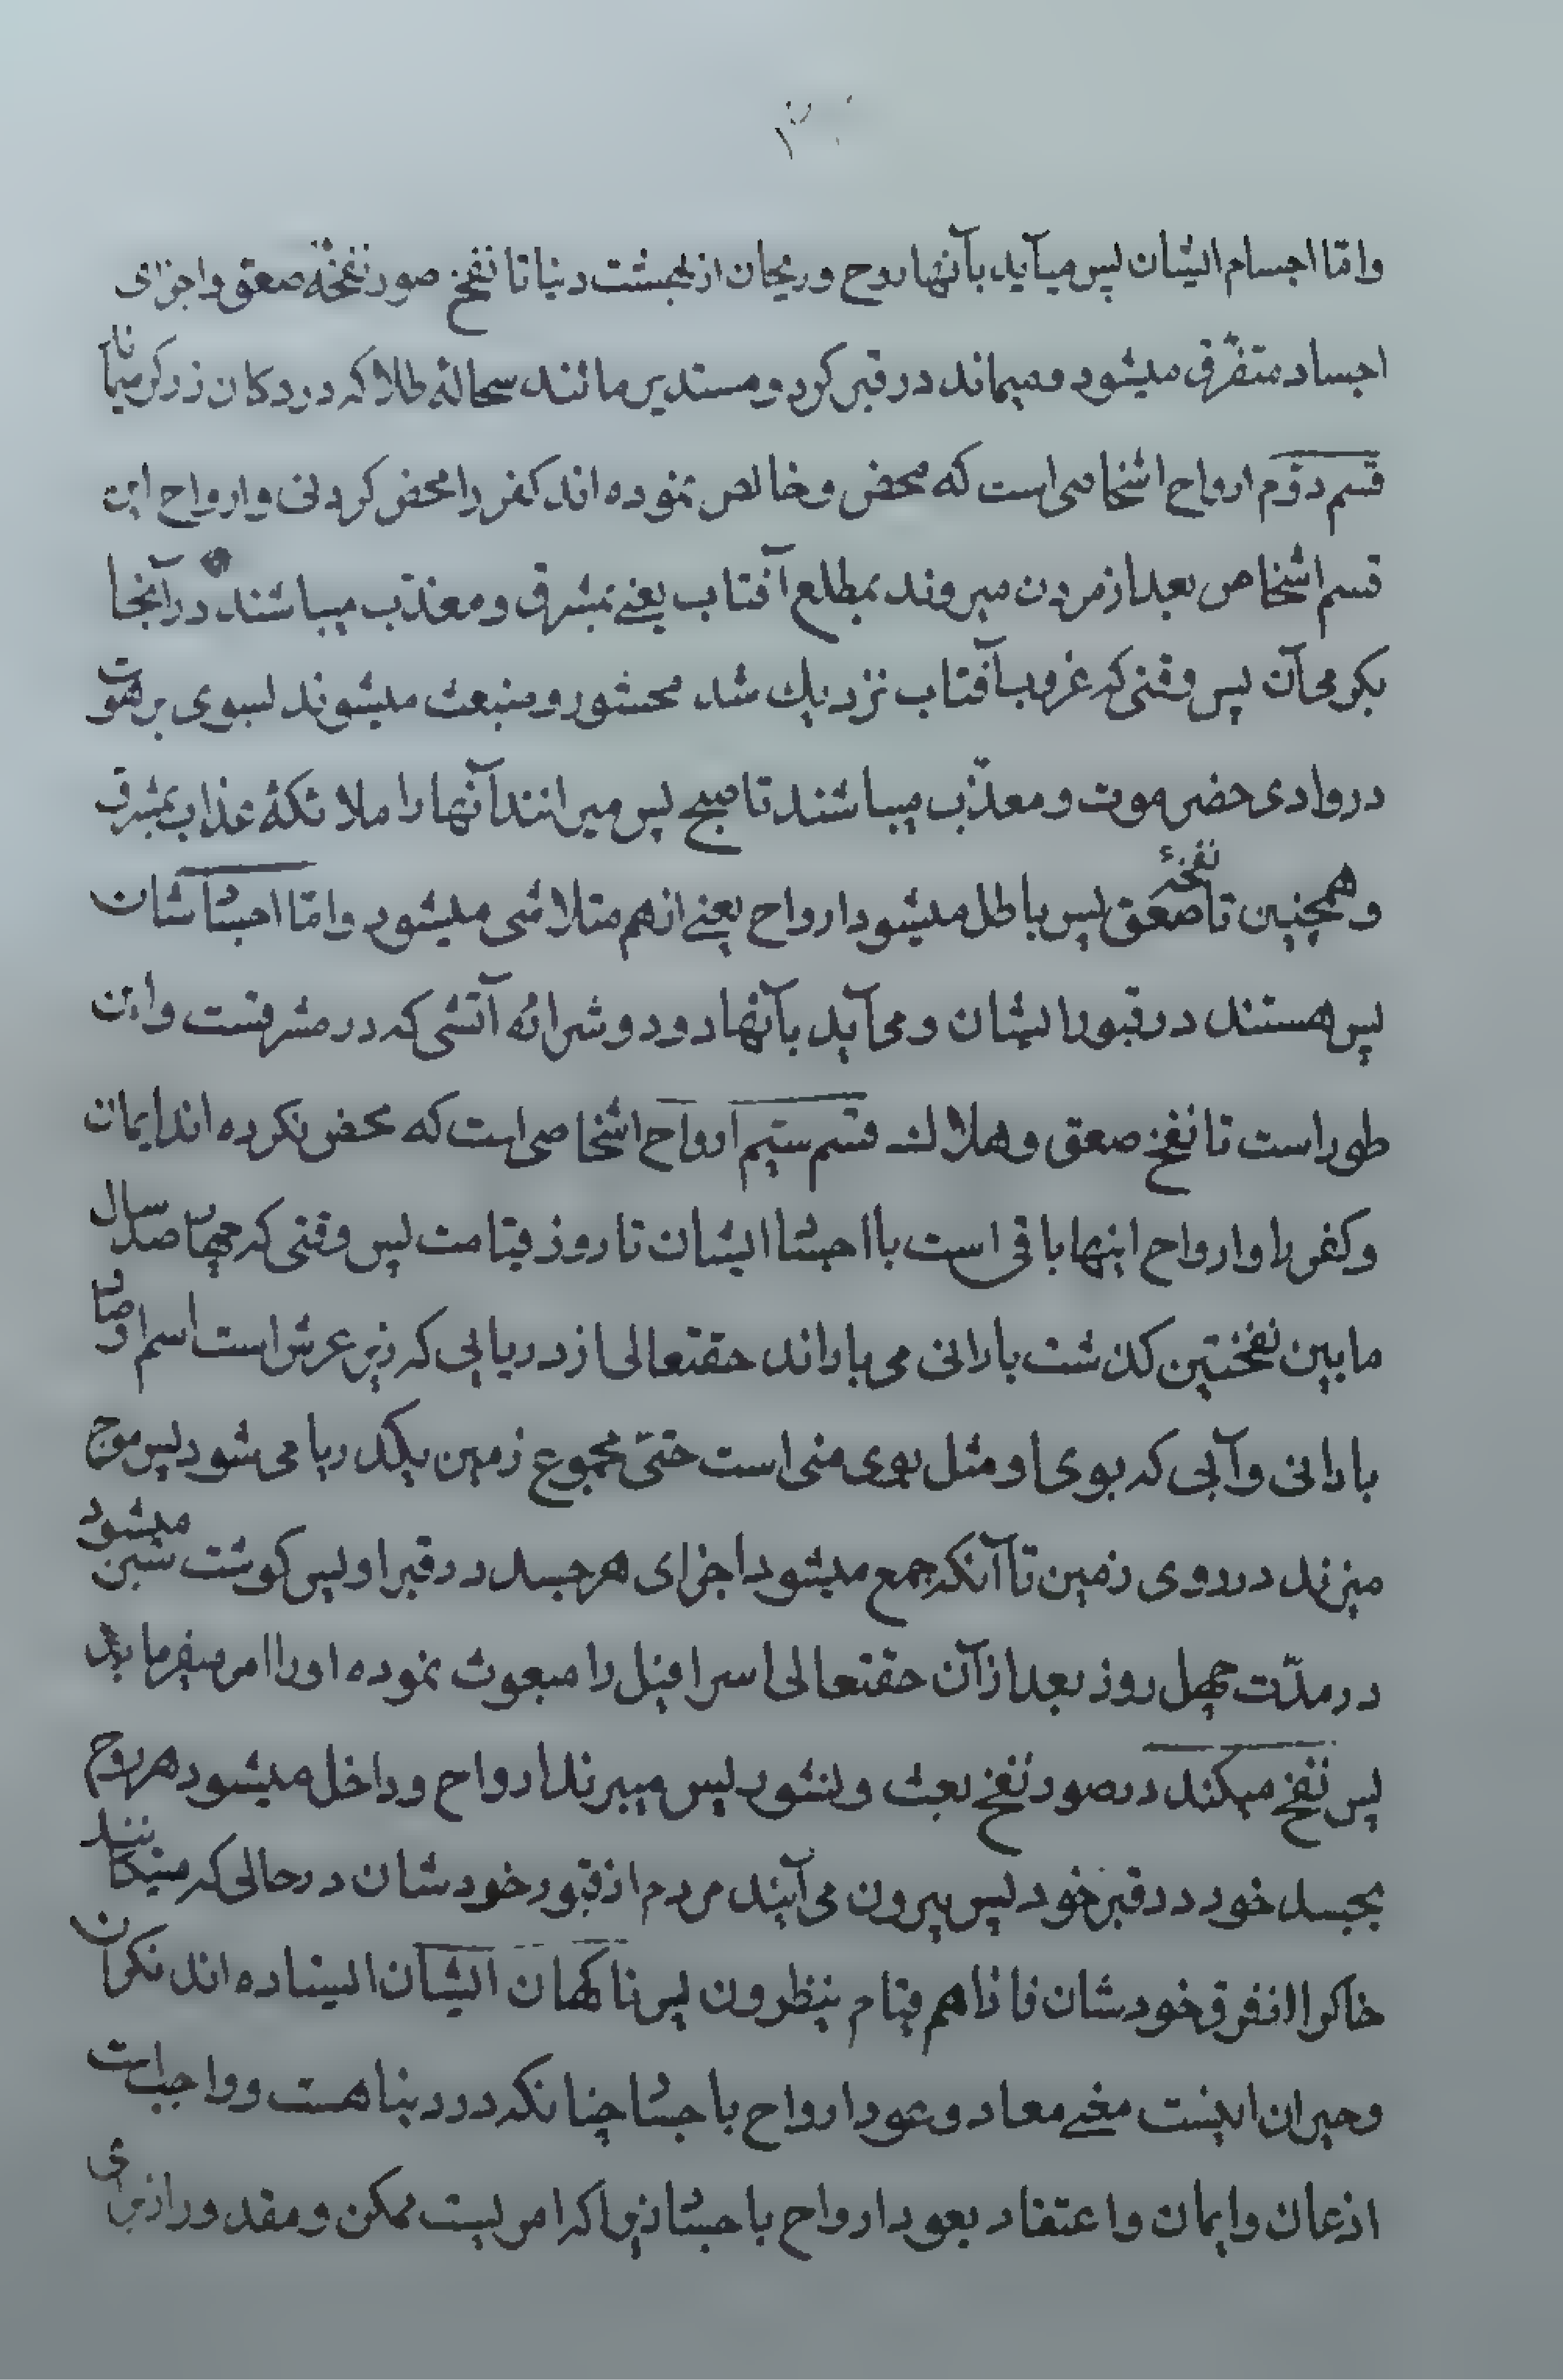 و امّا اجسام ایشان پس میآید بآنها روح و ریحان از بهشت دنیا تا نفخ صور نفخهٔ صعق و اجزای
اجساد متفرّق میشود و میماند در قبر کرد و مستدیر مانند سحالهٔ طلا که در دکان زرکر میباشد
قسم دوّم ارواح اشخاصی است که محض و خالص نموده اند کفر را محض کردنی و ارواح این
قسم اشخاص بعد از مردن میروند بمطلع آفتاب یعنی بمشرق و معذّب میباشند در آنجا
بکرمی آن پس وقتی که غروب آفتاب نزدیک شد محشور و منبعث میشوند بسوی برهوت
در وادی حضرموت و معذّب میباشند تا صبح پس میرانند آنها را ملائکهٔ عذاب بمشرق
و همچنین تا نفخهٔ صعق پس باطل میشود ارواح یعنی از هم متلاشی میشود و امّا اجسادشان
پس هستند در قبور ایشان و می آید بآنها دود و شرارهٔ آتشی که در مشرقست و این
طور است تا نفخ صعق و هلاک قسم سیّم ارواح اشخاصی است که محض نکرده اند ایمان
و کفر را و ارواح اینها باقی است با اجساد ایشان تا روز قیامت پس وقتی که چهارصد سال
مابین نفختین کذشت بارانی می باراند حقتعالی از دریایی که زیر عرش است اسم او صاد
بارانی و آبی که بوی او مثل بوی منی است حتّی مجموع زمین یکدریا می شود پس موج
میزند در روی زمین تا آنکه جمع میشود اجزای هر جسد در قبر او پس کوشت سبز میشود
در مدّت چهل روز بعد از آن حقتعالی اسرافیل را مبعوث نموده او را امر میفرماید
پس نفخ میکند در صور نفخ بعث و نشور پس میپرند ارواح و داخل میشود هر روح
بجسد خود در قبر خود پس بیرون می آیند مردم از قبور خودشان در حالی که میتکانند
خاکرا از فرق خودشان فاذاهم قیام ینظرون پس ناکهان ایشان ایستاده اند نکران
و حیران اینست معنی معاد و عود ارواح باجساد چنانکه در دنیا هست و واجب است
اذعان و ایمان و اعتقاد بعود ارواح باجساد زیرا که امریست ممکن و مقدور از برای